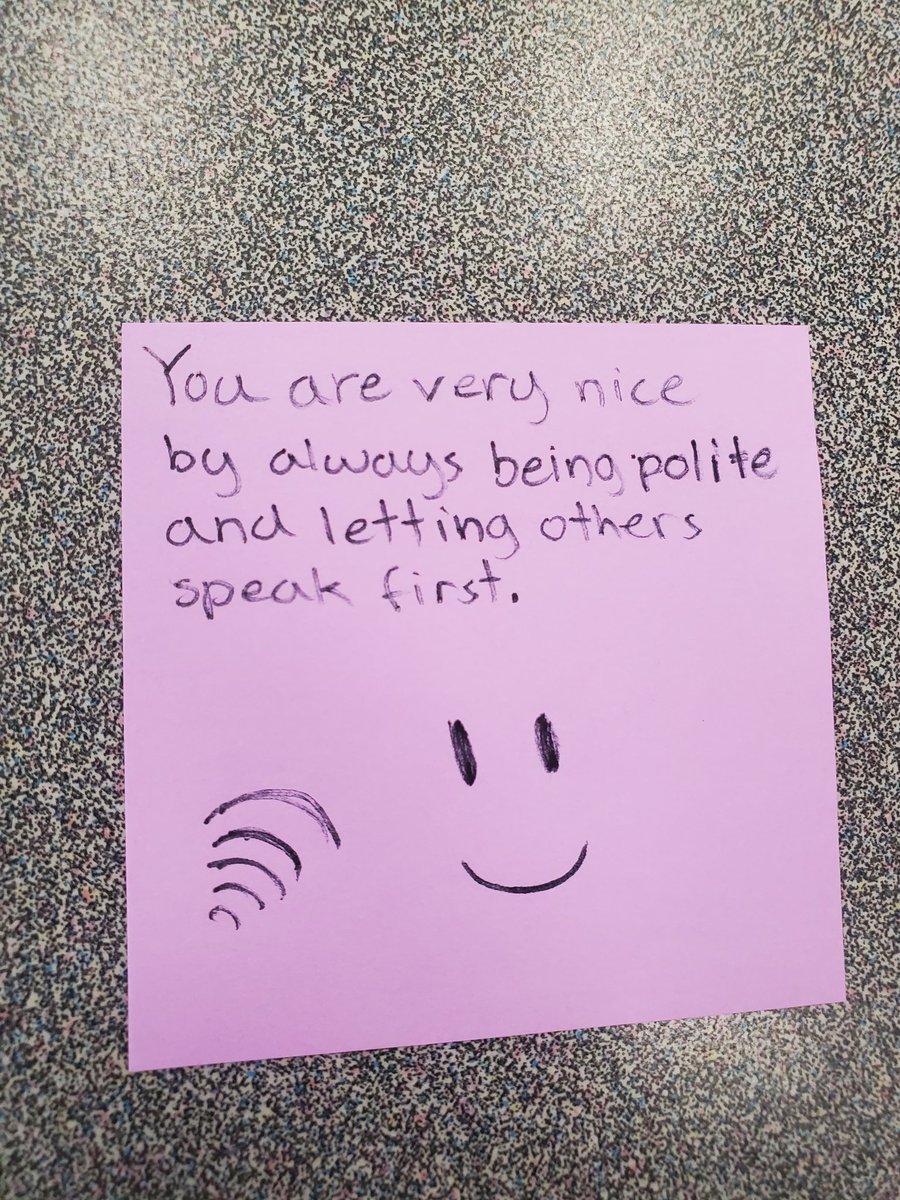 You are very nice
by always being polite
and letting others
speak first.